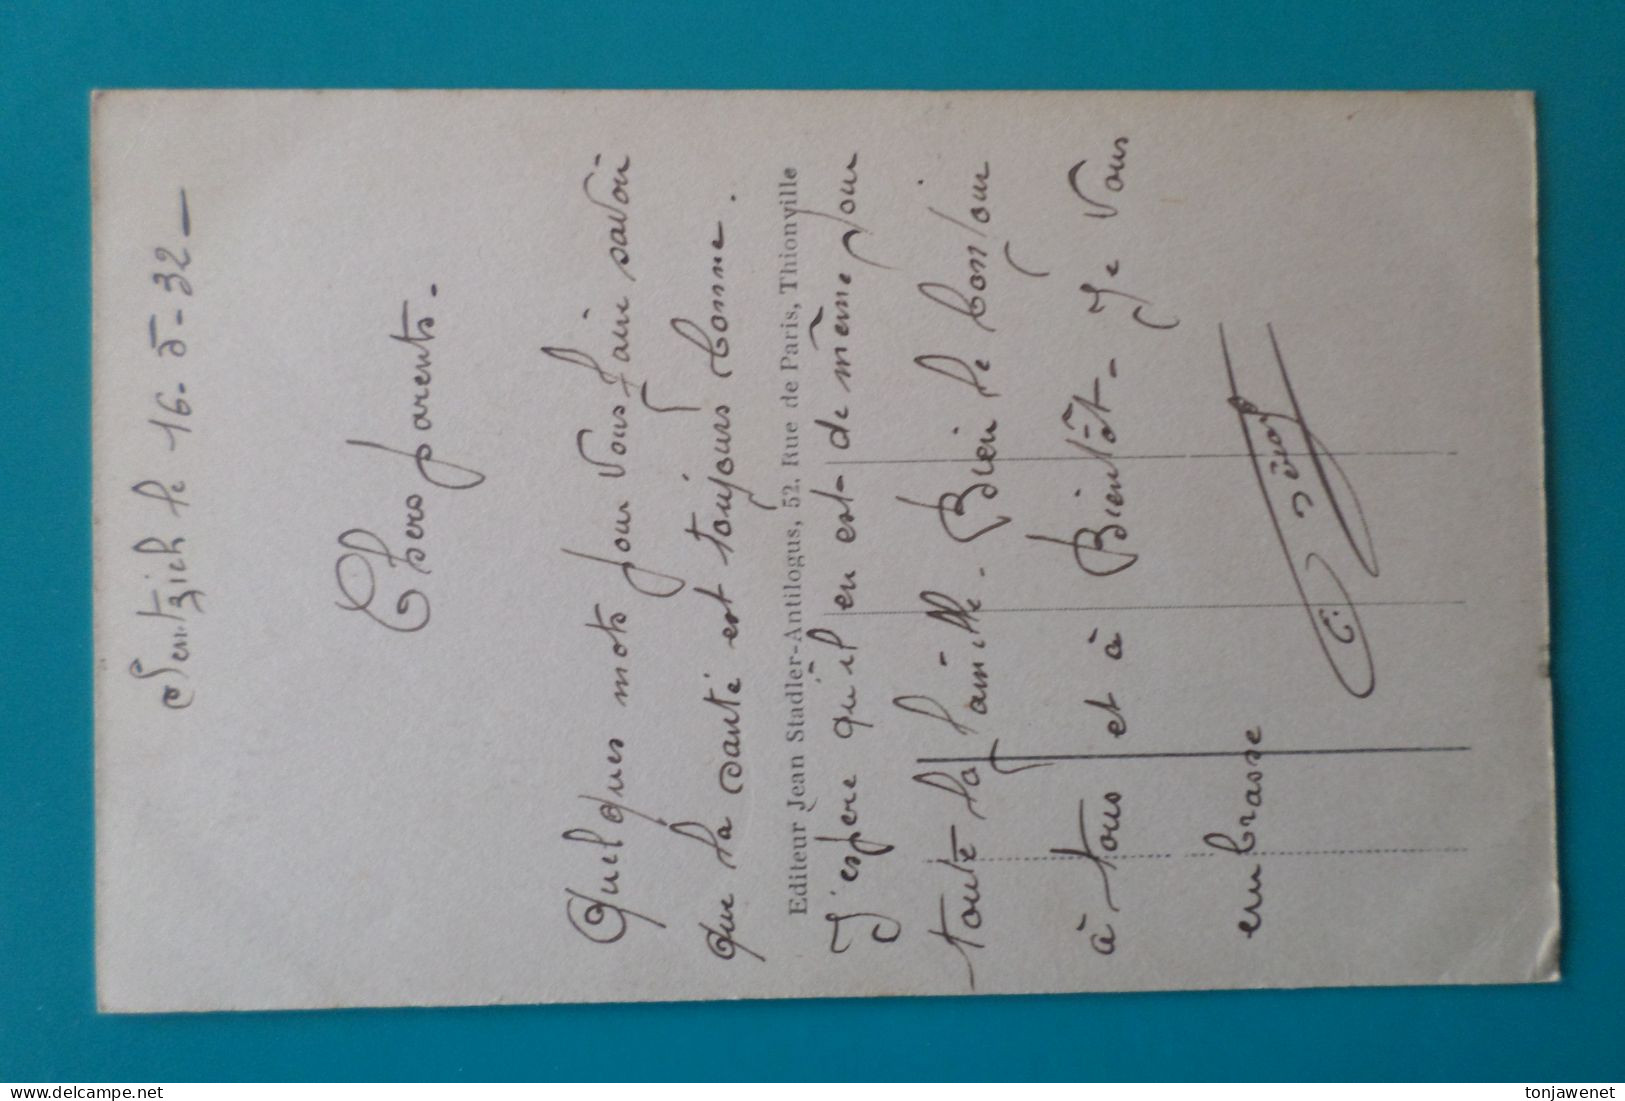 Sentzich le 16-5-32-
Chers parents.
Quelques mots pour vous faire savoir
que la santé est toujours bonne.
Editeur Jean Stadler-Antilogus, 52, Rue de Paris, Thionville
J'espère qu'il en est de même pour
toute la famille. Bien le bonjour
à tous et à Bientôt. Je vous
embrasse
tonjawenet